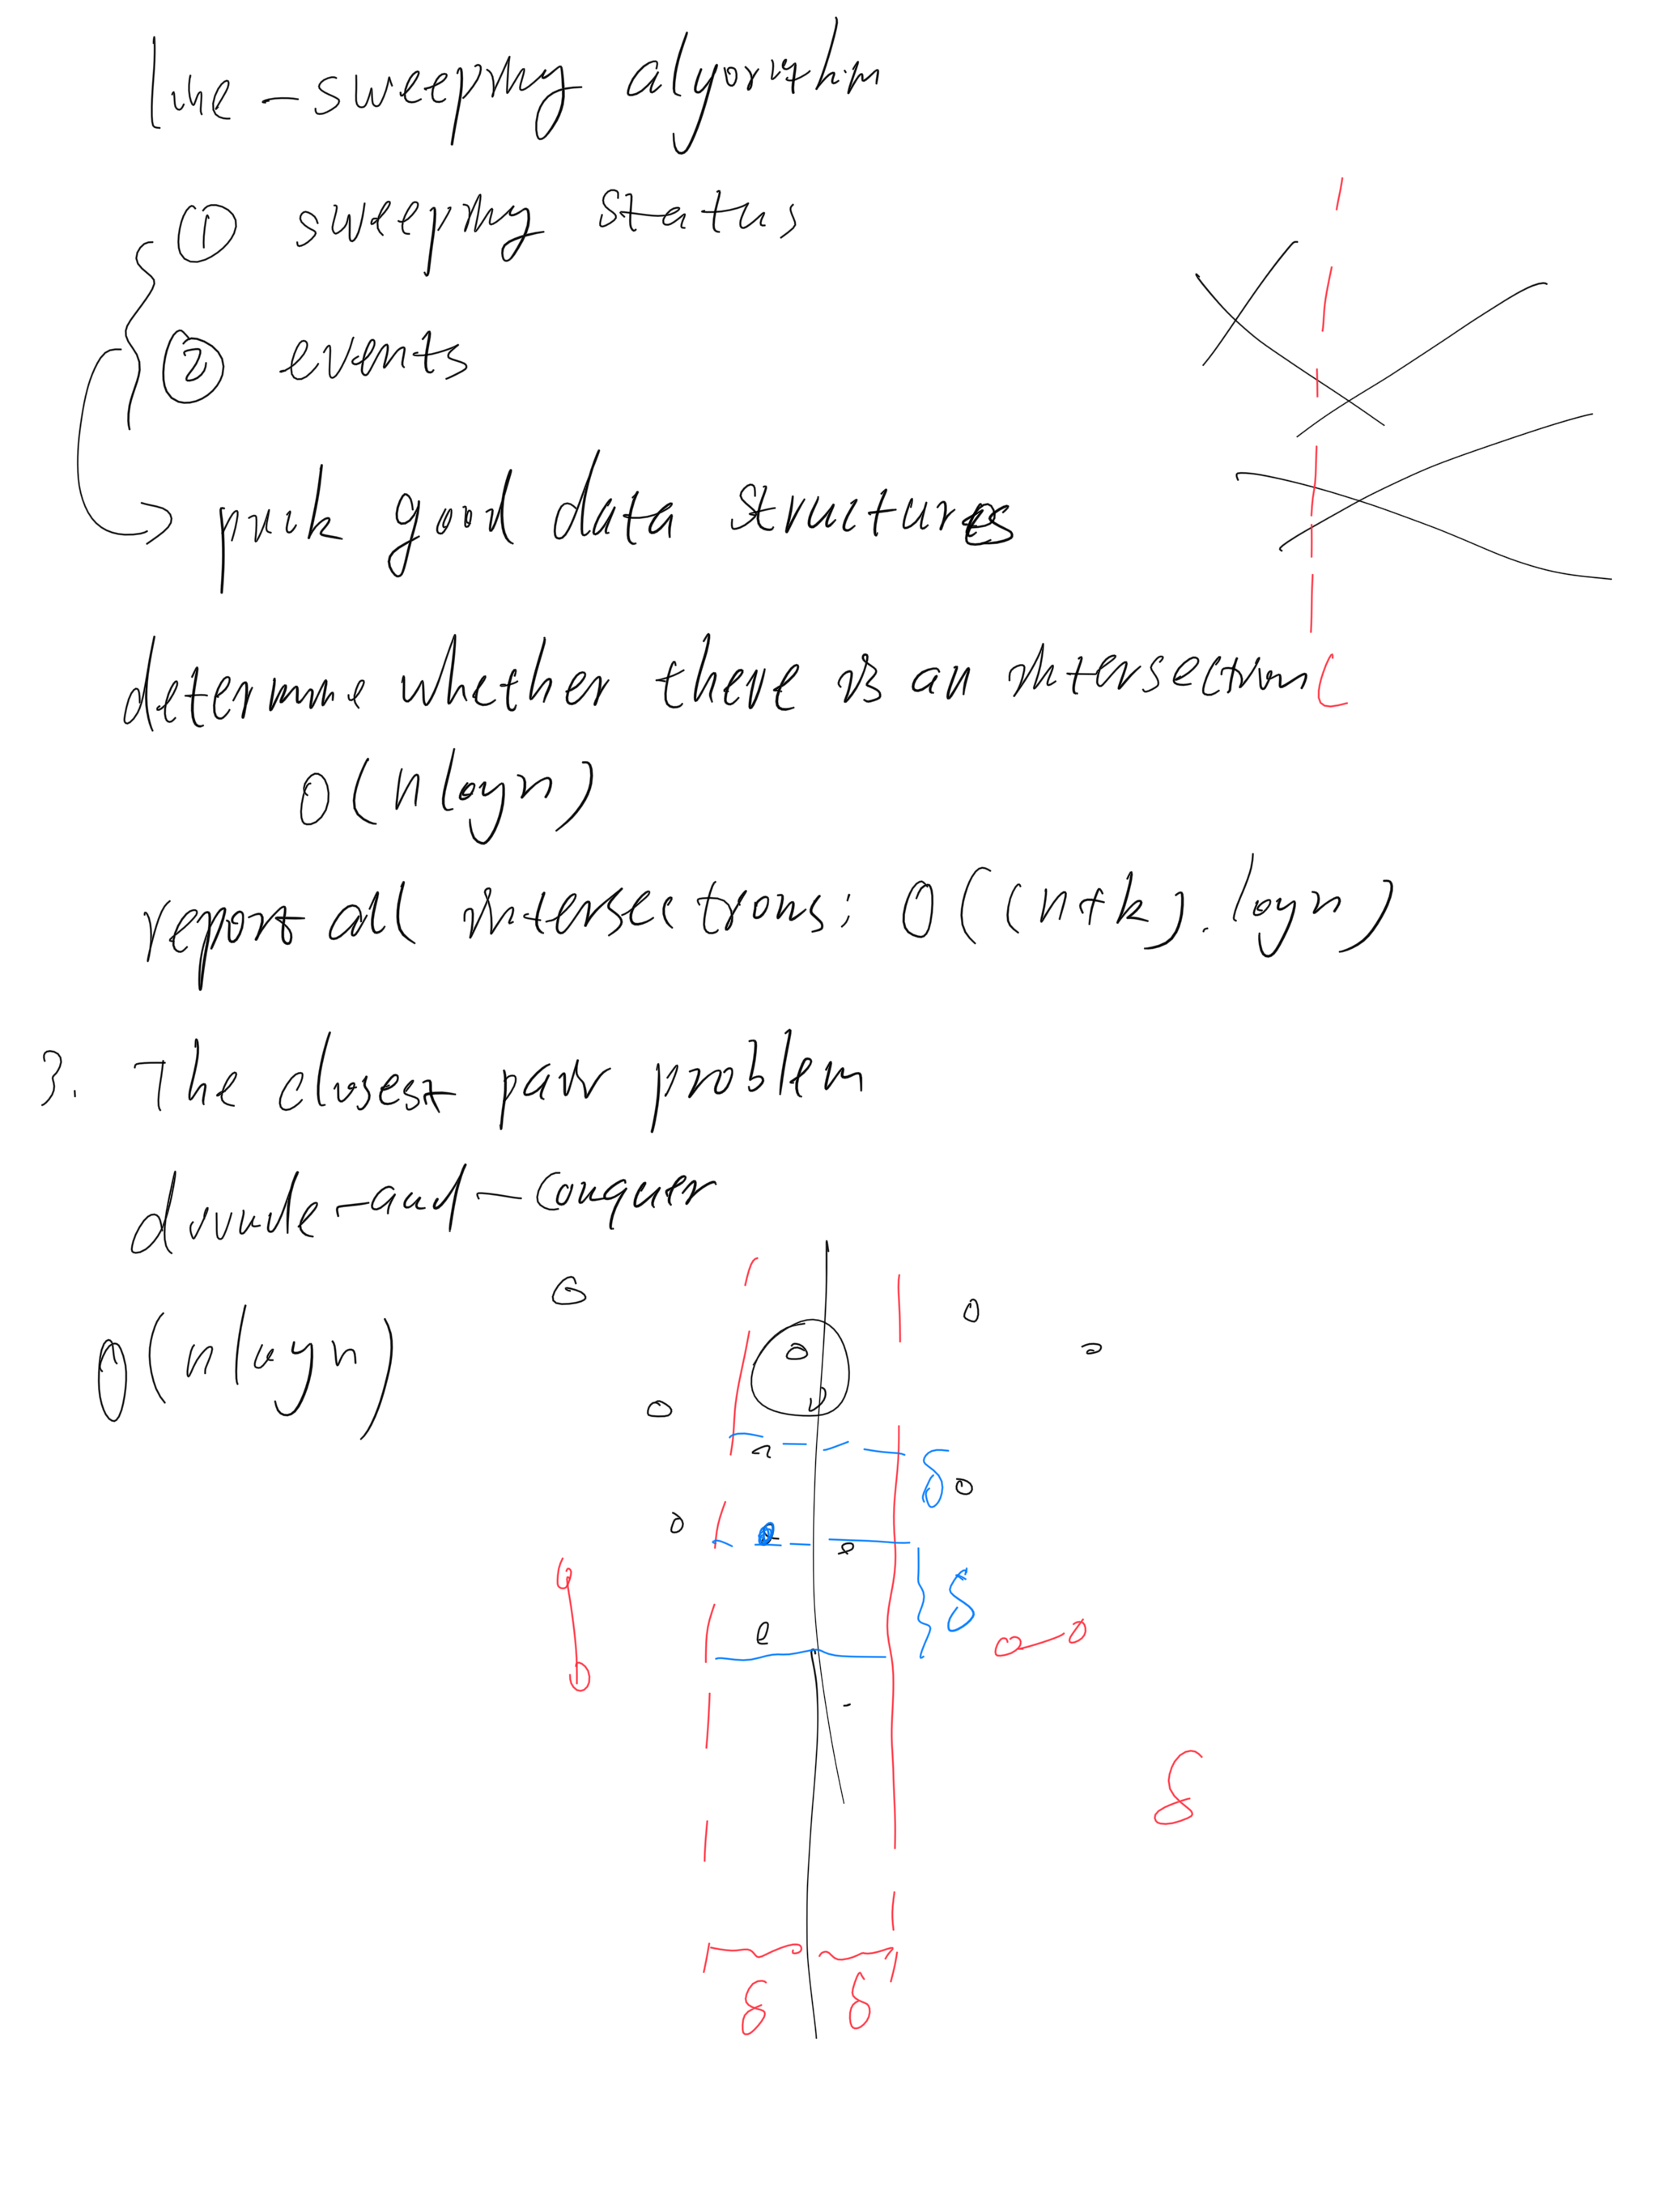 line-sweeping algorithm
① sweeping status
② events
pick good data structures
determine whether there is an intersection
O(nlogn)
report all intersections: O((n+k).logn)
3. The closest pair problem
divide-and-conquer
O(nlogn)
δ
δ
δ
δ δ